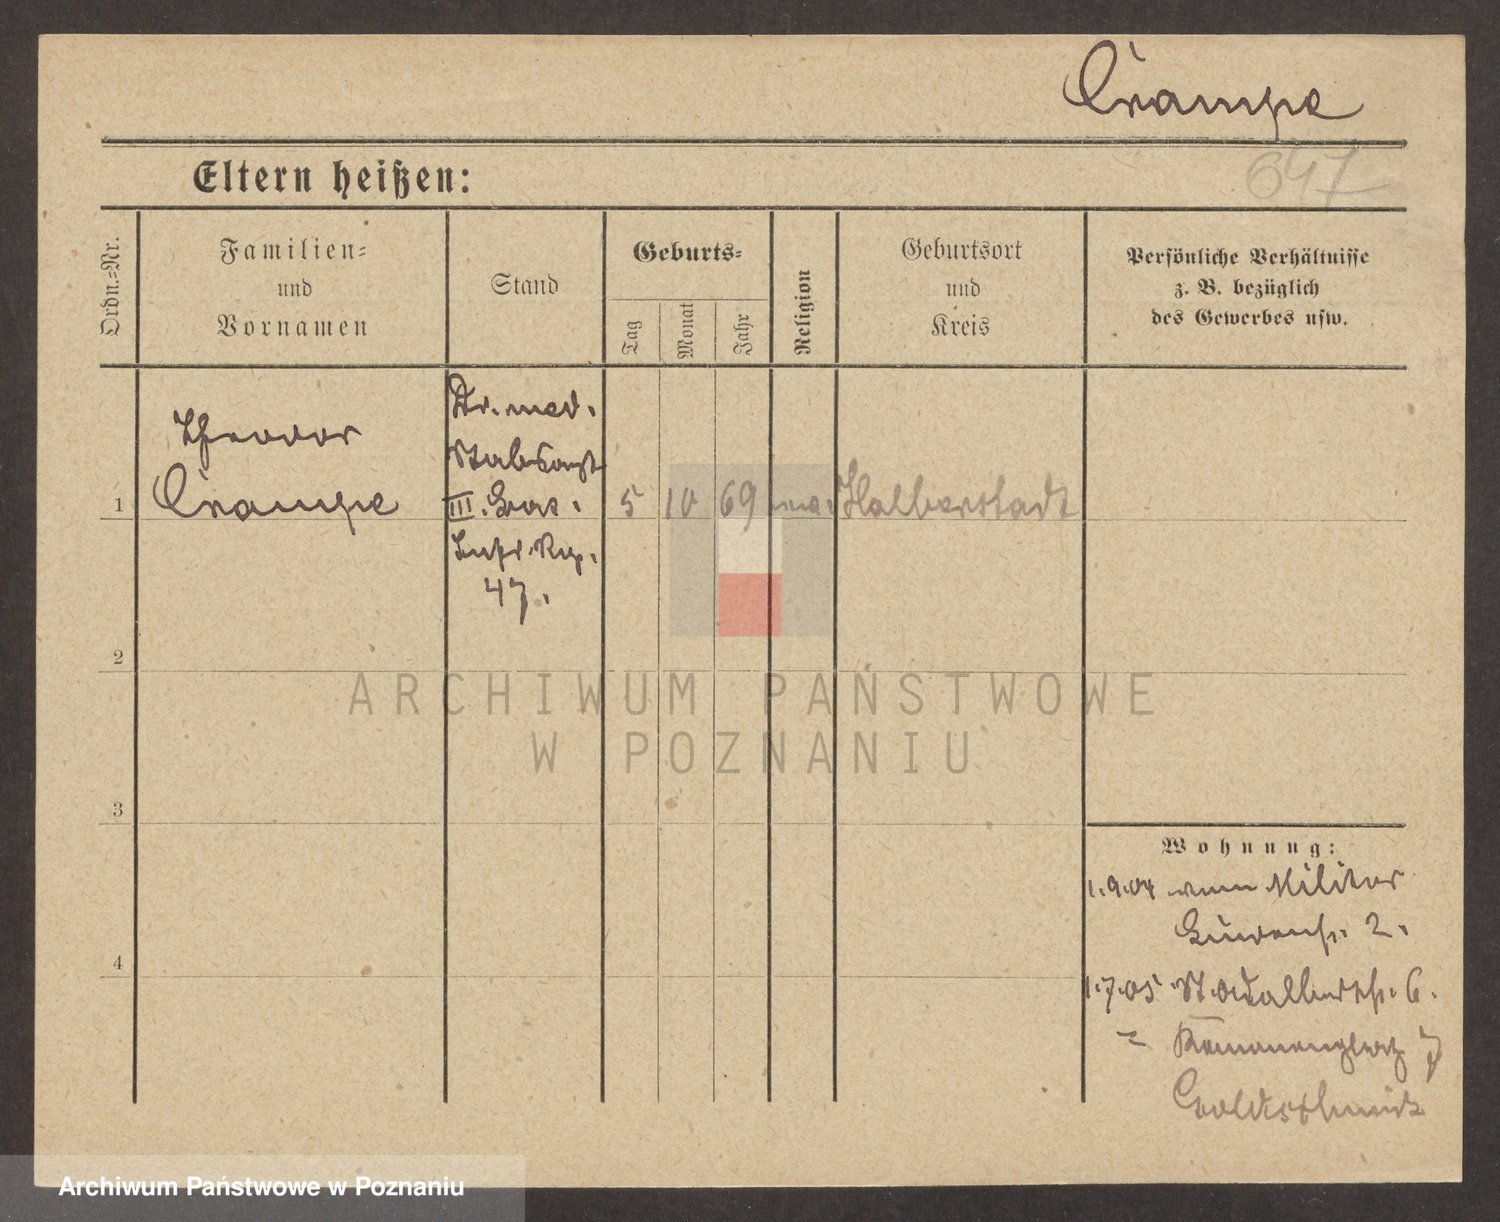 Crampe
647
Eltern heißen:
Ordn.=Nr.
Familien=
und
Vornamen
Stand
Geburts=
Tag
Monat
Jahr
Religion
Geburtsort
und
Kreis
Persönliche Verhältnisse
z. B. bezüglich
des Gewerbes usw.
Theodor
Crampe
Dr. med.
Stabsarzt
III.
Inftr. Rg.
47.
1
5 10 69 Halberstadt
2
3
4
Wohnung:
1.9.04 vom Militär
2.
1.7.05 St. Adalbertstr. 6.
=
Goldschmidt
ARCHIWUM PAŃSTWOWE
W POZNANIU
Archiwum Państwowe w Poznaniu